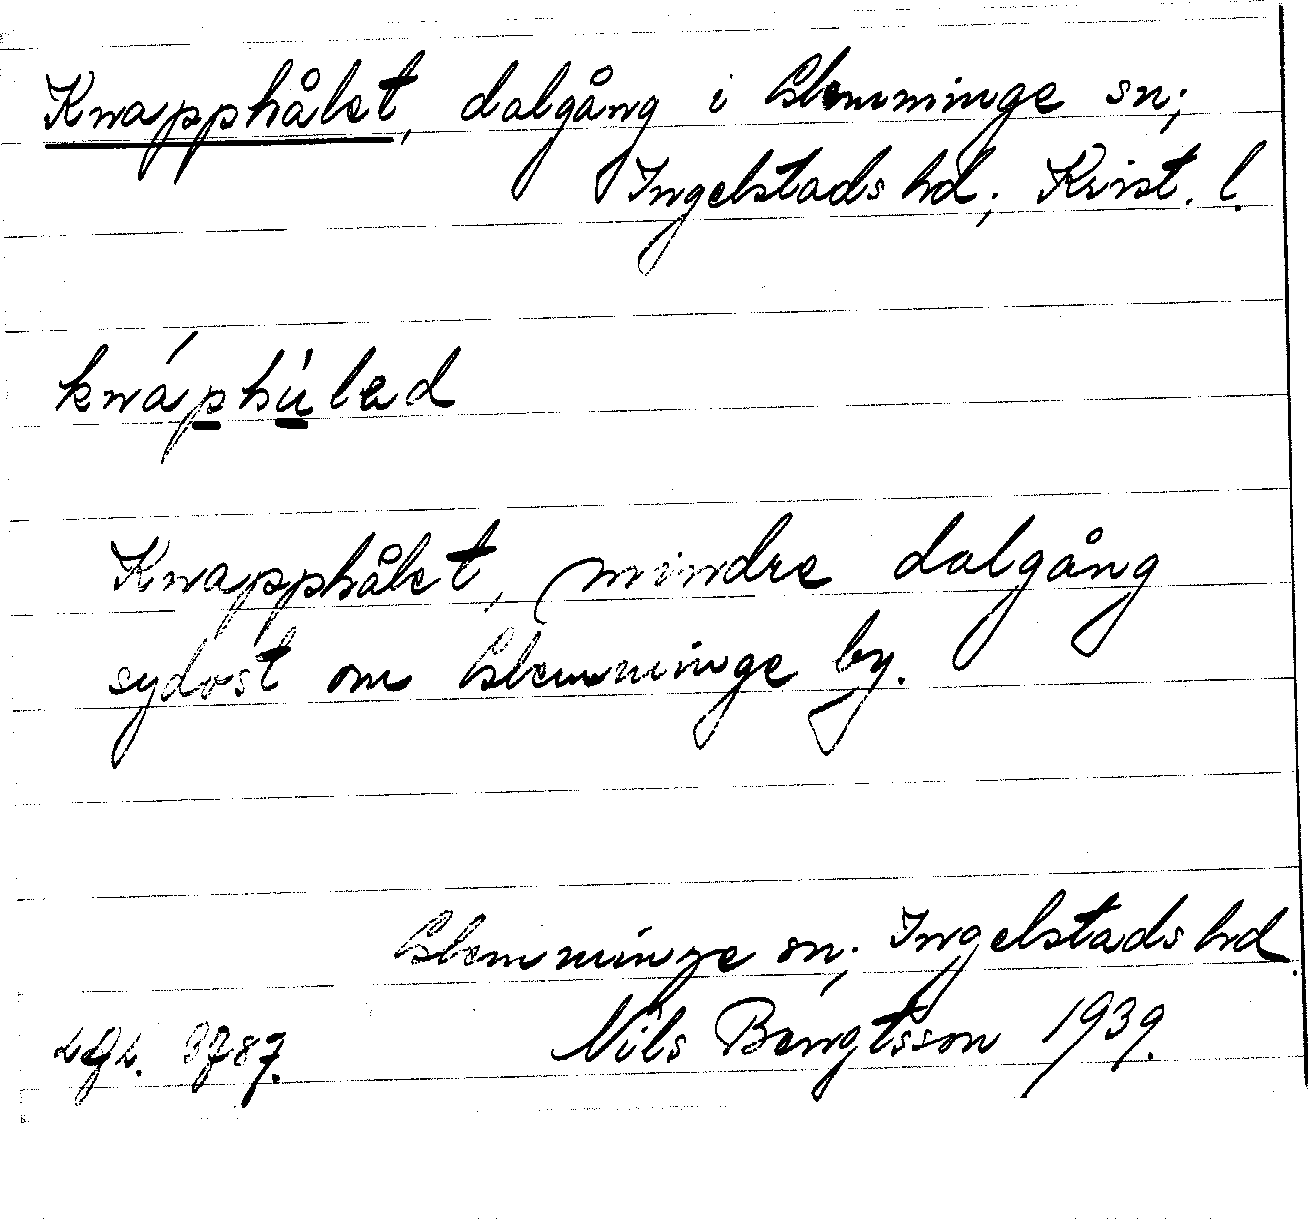 Knapphålet, dalgång i Glemminge sn;
Ingelstads hd; Krist. l.
knáphu̍lad
Knapphålet, mindre dalgång
sydost om Glemminge by.
Glemminge sn; Ingelstads hd.
Nils Bengtsson 1939.
3787.